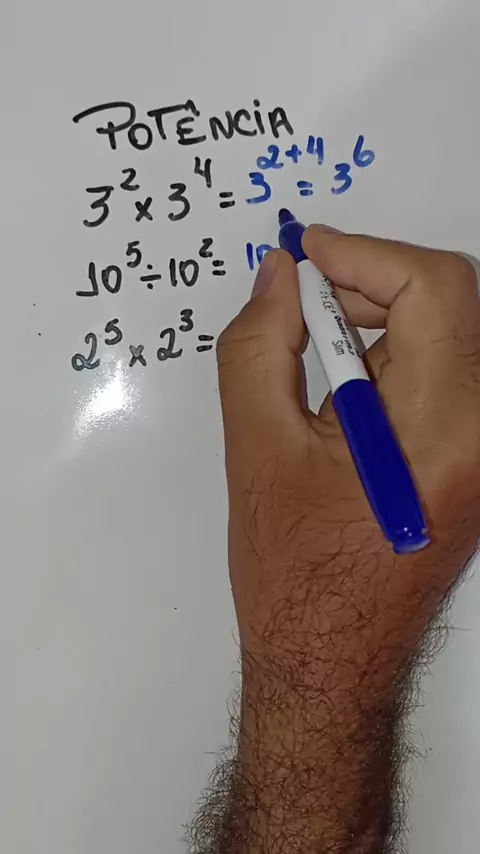 POTÊNCIA
3² x 3⁴ = 3²⁺⁴ = 3⁶
10⁵ ÷ 10² = 10
2⁵ x 2³ =
Sim